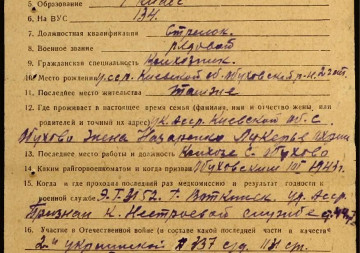 5. Образование 1 класс
6. На ВУС 134
7. Должностная квалификация Стрелок
8. Военное звание рядовой
9. Гражданская специальность Колхозник
10. Место рождения усср. Киевской об. Обуховский р-н.
11. Последнее место жительства также
12. Где проживает в настоящее время семья (фамилия, имя и отчество жены, или
родителей и точный их адрес) Киевской об. с.
Обухово Жена Назаренко Лукерья
13. Последнее место работы и должность Колхоз с. Обухово
14. Каким райгорвоенкоматом и когда призван Обуховским 1943 г.
15. Когда и где проходил последний раз медкомиссию и результат: годности к
военной службе Э.Г. 3152 г. Воткинск. ур. Асср.
Признан к. нестроевой службе
16. Участие в Отечественной войне (в составе какой последней части и в качестве
2й украинской 337 сд.